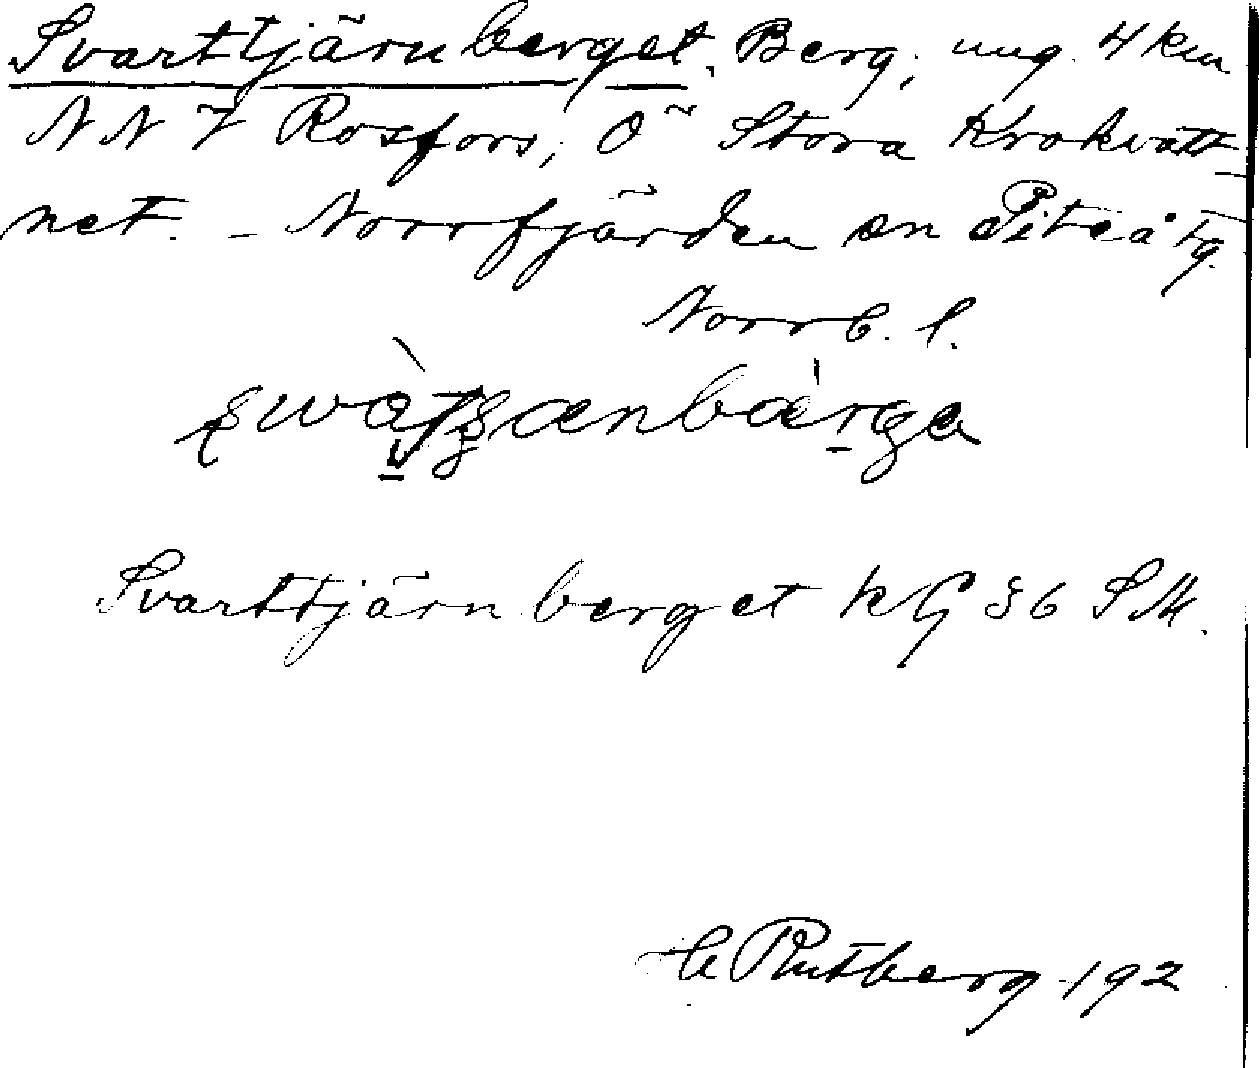 Svarttjärnberget. Berg, ung. 4 km
NNV Rosfors, Ö Stora Krokvatt-
net. - Norrfjärden sn Piteå tg.
Norrb. l.
Svarttjärnberget KG 36 SM.
Rutberg 192